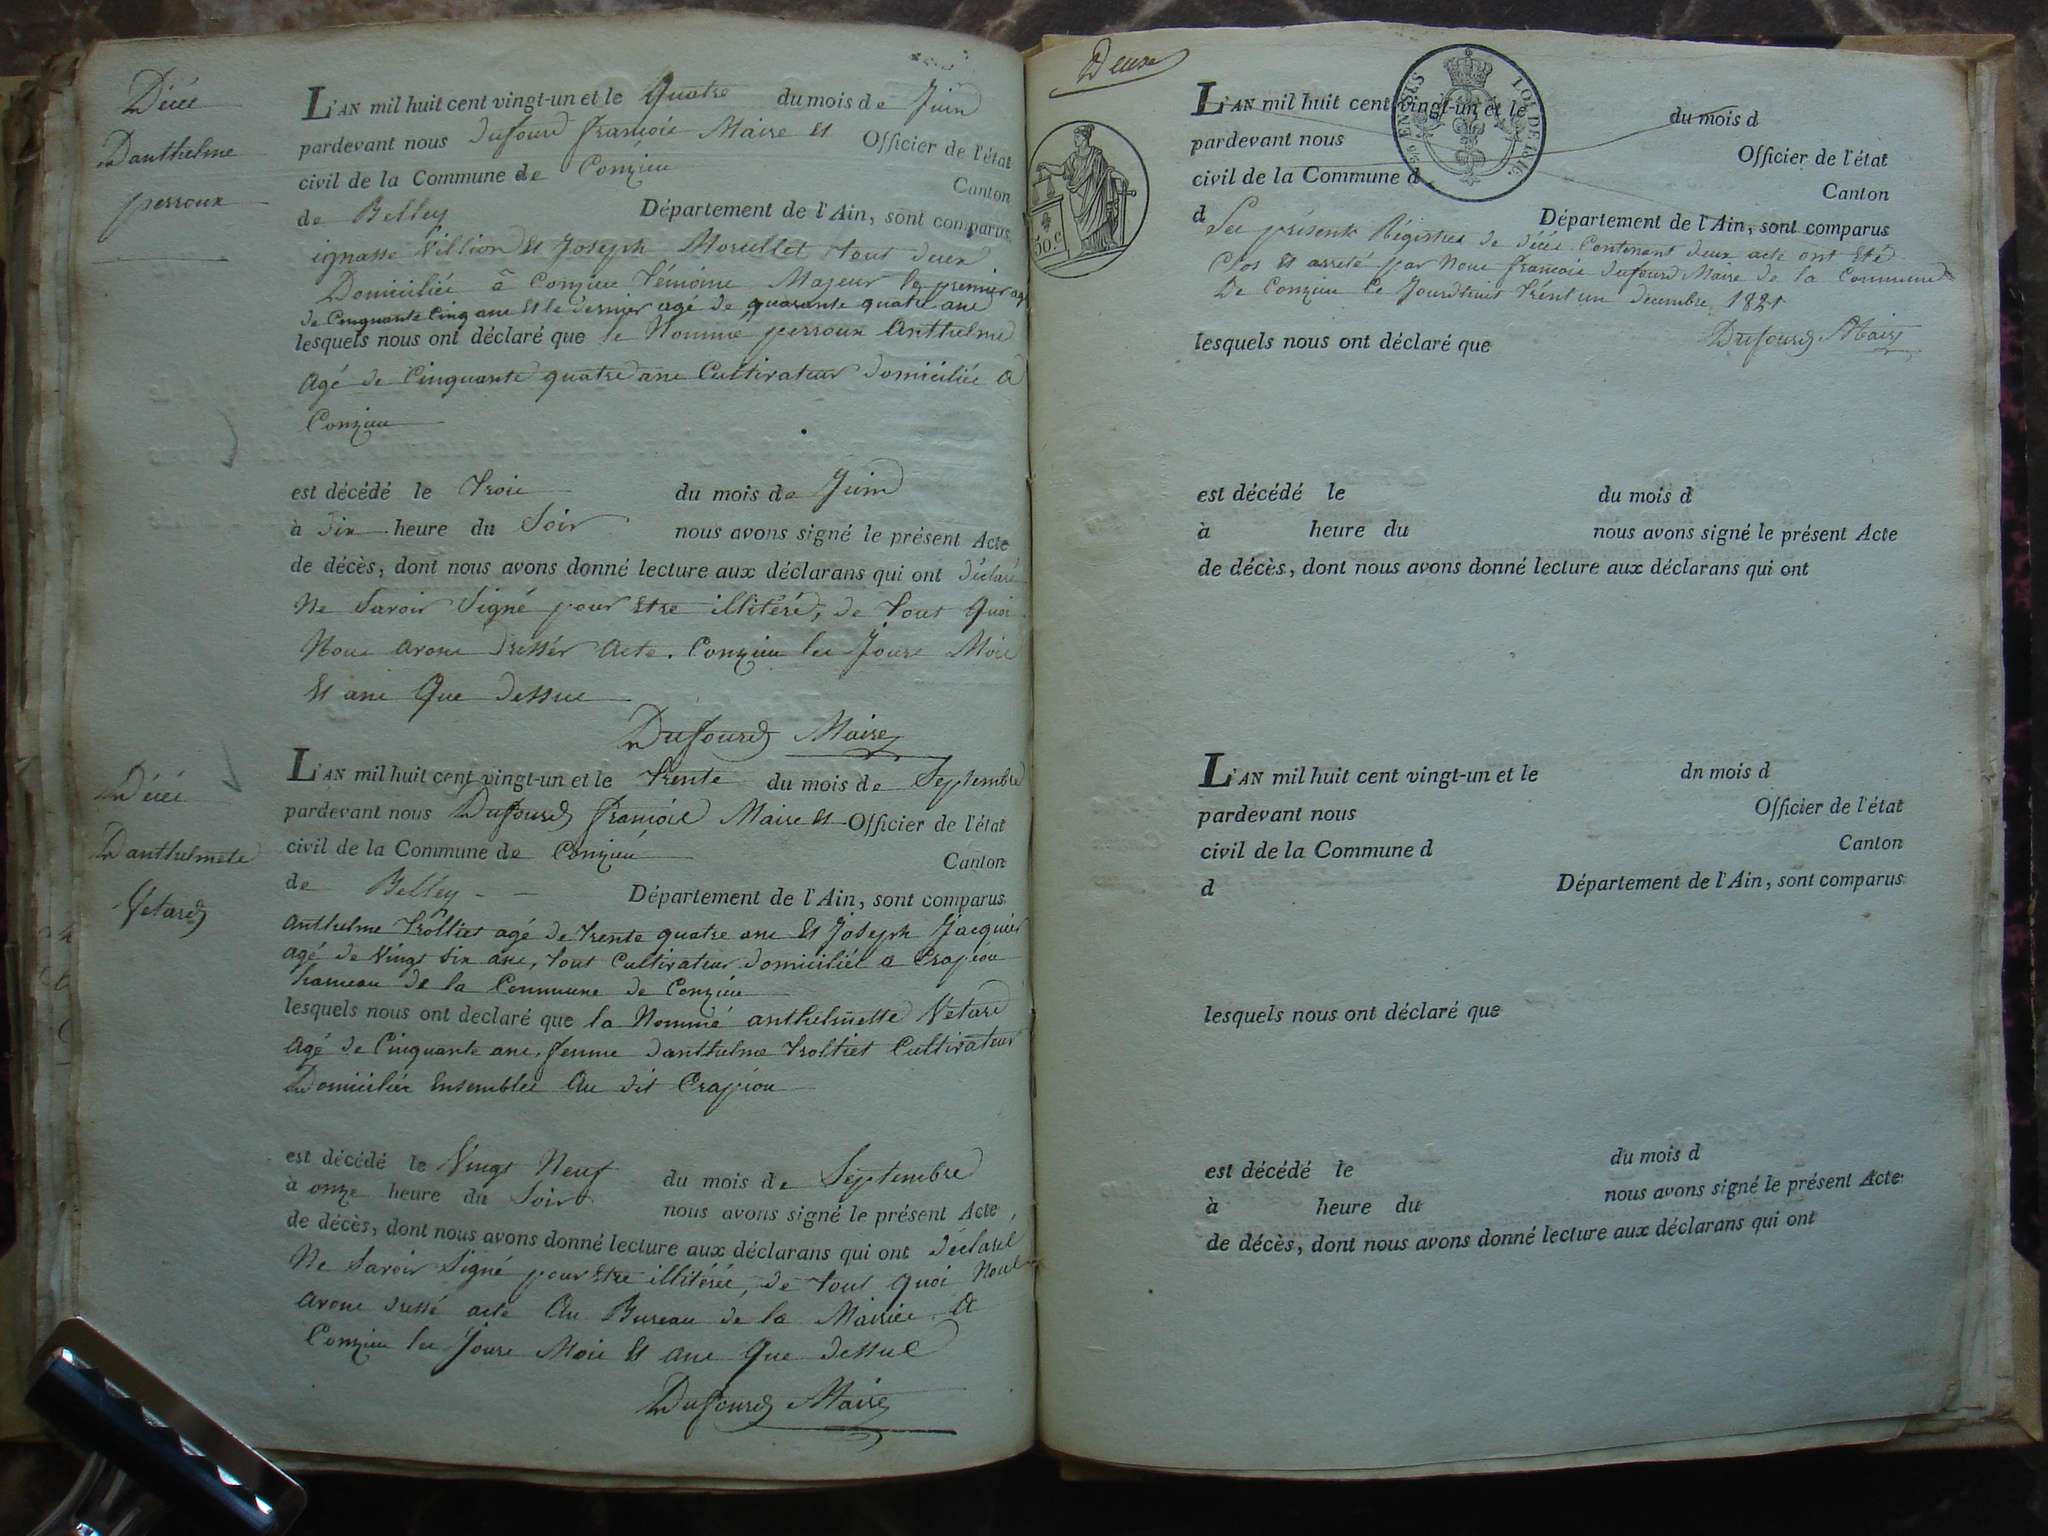 Décée
Danthelme
perroux
L'AN mil huit cent vingt-un et le Quatre du mois de Juin
pardevant nous dufourd francois Maire Et Officier de l'état
civil de la Commune de Conzieu Canton
de Belley Département de l'Ain, sont comparus
ignasse Villiond Et Joseph Morullet tout deux
Domiciliée à Conzieu témoins Majeur le premier agé
de Cinquante Cinq ans Et le dernier agé de quarante quatre ans
lesquels nous ont déclaré que le Nomme perroux Anthelme
Agé de Cinquante quatre ans Cultivateur domiciliée a
Conzieu
est décédé le trois du mois de Juin
à dix heure du Soir nous avons signé le présent Acte
de décès, dont nous avons donné lecture aux déclarans qui ont déclaré
Ne Savoir Signé pour Etre illitéré, de tout quoi
Nous avons dressér acte. Conzieu les Jours Mois
Et ans Que dessus
Dufourd Maire
Décée
Danthelmete
Vetard
L'AN mil huit cent vingt-un et le trente du mois de Septembre
pardevant nous Dufourd francois Maire Et Officier de l'état
civil de la Commune de Conzieu Canton
de Belley Département de l'Ain, sont comparus
Anthelme trolliet agé de trente quatre ans Et Joseph Jacquier
agé de Vingt Six ans, tout Cultivateur domiciliée a Crapiou
hameau de la Commune de Conzieu
lesquels nous ont declaré que la Nommé anthelmette Vetard
Agé de Cinquante ans, femme danthelme trolliet Cultivateur
Domiciliée Ensemblee Au dit Crapiou
est décédé le Vingt Neuf du mois de Septembre
à onze heure du Soir nous avons signé le présent Acte
de décès, dont nous avons donné lecture aux déclarans qui ont déclaré
Ne Savoir Signé pour Etre illitérée, de tout quoi Nous
avons dressé acte Au Bureau de la Mairie a
Conzieu les Jours Mois Et ans que dessus
Dufourd Maire
Deuxe
50.c
L'AN mil huit cent vingt-un et le du mois d
pardevant nous Officier de l'état
civil de la Commune d Canton
d Département de l'Ain, sont comparus
Les présents Régistres de décée Contenant deux acte ont Eté
Clos Et arreté par Nous francois dufourd Maire de la Commune
De Conzieu Ce Jourdhuis trent un decembre 1821
Dufourd Maire
lesquels nous ont déclaré que
est décédé le du mois d
à heure du nous avons signé le présent Acte
de décès, dont nous avons donné lecture aux déclarans qui ont
L'AN mil huit cent vingt-un et le dn mois d
pardevant nous Officier de l'état
civil de la Commune d Canton
d Département de l'Ain, sont comparus
lesquels nous ont déclaré que
est décédé le du mois d
à heure du nous avons signé le présent Acte
de décès, dont nous avons donné lecture aux déclarans qui ont